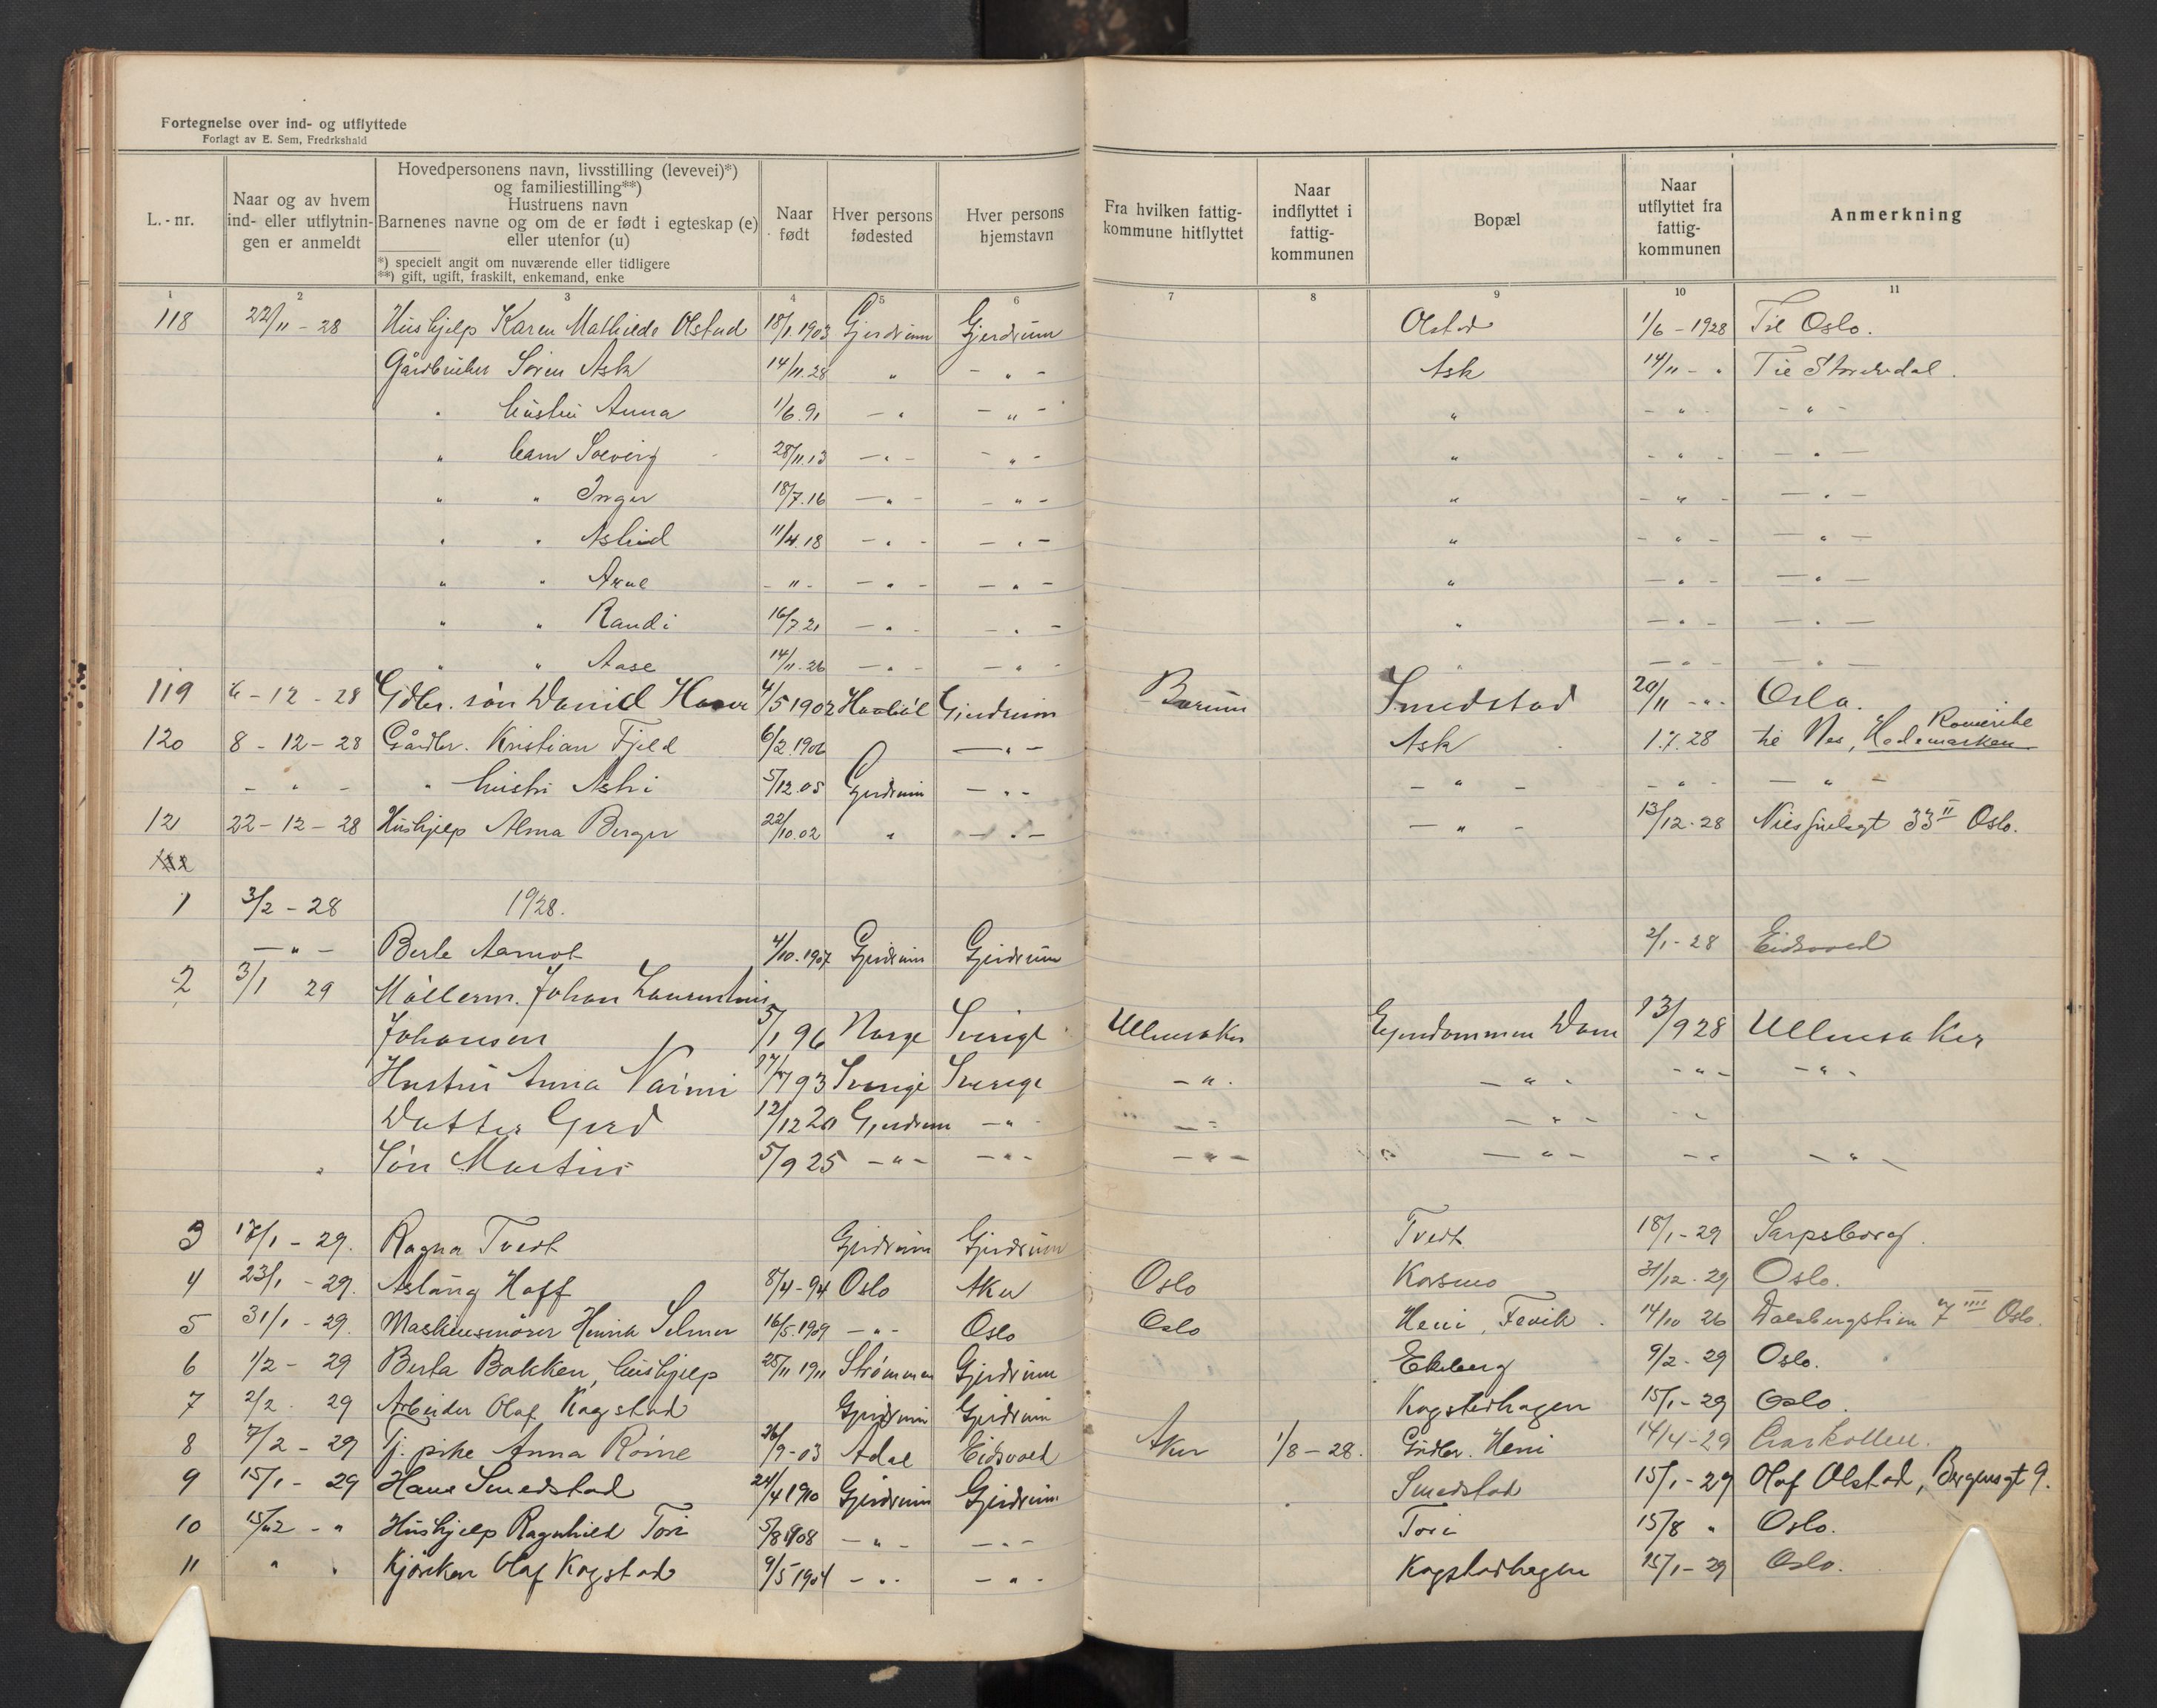 Fortegnelse over ind- og utflyttede
Forlagt av E. Sem, Fredrkshald
L.-nr.
Naar og av hvem ind- eller utflytnin-gen er anmeldt
Hovedpersonens navn, livsstilling (levevei)*)
og familiestilling**)
Hustruens navn
Barnenes navne og om de er født i egteskap (e)
eller utenfor (u)
*) specielt angit om nuværende eller tidligere
**) gift, ugift, fraskilt, enkemand, enke
Naar født
Hver persons fødested
Hver persons hjemstavn
Fra hvilken fattig-kommune hitflyttet
Naar indflyttet i fattig-kommunen
Bopæl
Naar utflyttet fra fattig-kommunen
Anmerkning
1 2 3 4 5 6 7 8 9 10 11
118 22/11-28 Hushjelp Karen Mathilde Olstad 18/1.1903 Gjerdrum Gjerdrum Olstad 1/6-1928 Til Oslo.
Gårdbruker Søren Ask 14/11.28 " - " - Ask 14/11 - "
" hustru Anna 1/6.91 - " - " - " - " - - " -
" barn Solveig 28/11.13 - " - - " - " - " - - " -
" " Inger 18/7.16 - " - - " - " - " - - " -
" " Astrid 11/4.18 - " - - " - " - " - - " -
" " Arne - " - - " - - " - " - " - - " -
" " Randi 16/7.21 - " - - " - " - " - - " -
" " Aase 14/11.26 - " - - " - " - " - - " -
119 6-12-28 Gdbr. søn Daniel 4/5 1902 Gjerdrum Bærum Smedstad 20/11 - " - Oslo.
120 8-12-28 Gårdbr. Kristian Fjeld 6/2.1906 - " - Ask 1.7.28 til Nes, Hedemarken Romerike
- " - " hustru Astri 5/12.05 Gjerdrum - " - - " - - " - - " -
121 22-12-28 Hushjelp Alma Berger 22/10.02 " - " - - " - 13/12.28 33 II Oslo.
1 3/2-28 1928.
- " - Berte Aamot 4/10.1907 Gjerdrum Gjerdrum 2/1-28 Eidsvold
2 3/1 29 Møllerm. Johan Laurentius
Johansen 5/1 96 Norge Sverige Ullensaker Ejendommen Dam 13/9 28 Ullensaker
Hustru Anna Naimi 17/7 93 Sverige Sverige - " - - " - - " - - " -
Datter Gerd 12/12 20 Gjerdrum - " - - " - - " - - " -
" Søn Martin 5/9 25 - " - - " - - " - - " - - " - - " -
3 18/1-29. Ragna Tveit Gjerdrum Gjerdrum Tveit 18/1-29 Sarpsborg.
4 23/1-29. Aslaug Hoff 8/4-94 Oslo Aker Oslo Korsmo 31/12.29 Oslo.
5 31/1-29. Henrik Selmer 16/5.1909 - " - Oslo Oslo Heni, 14/10 26 7 IIII Oslo.
6 1/2-29 Berta Bakken, hushjelp 25/11 1911 Strømmen Gjerdrum Ekeberg 9/2-29 Oslo.
7 2/2. 29 Arbeider Olaf Kogstad Gjerdrum Gjerdrum Kogstadhagen 15/1-29 Oslo.
8 7/2-29 Tj. pike Anna 26/9-03 Ådal Eidsvold Aker 1/8-28. Gdbr. Heni 14/4-29
9 15/1-29 Hans Smedstad 24/4 1910 Gjerdrum Gjerdrum Smedstad 15/1-29 Olaf Olstad, Bergensgt 9.
10 15/2 - " Hushjelp Ragnhild Tori 5/8 1908 - " - - " - Tori 15/8 " Oslo.
11 " " Kjøreker Olaf Kogstad 9/5 1904 - " - - " - Kogstadhagen 15/1-29 Oslo.